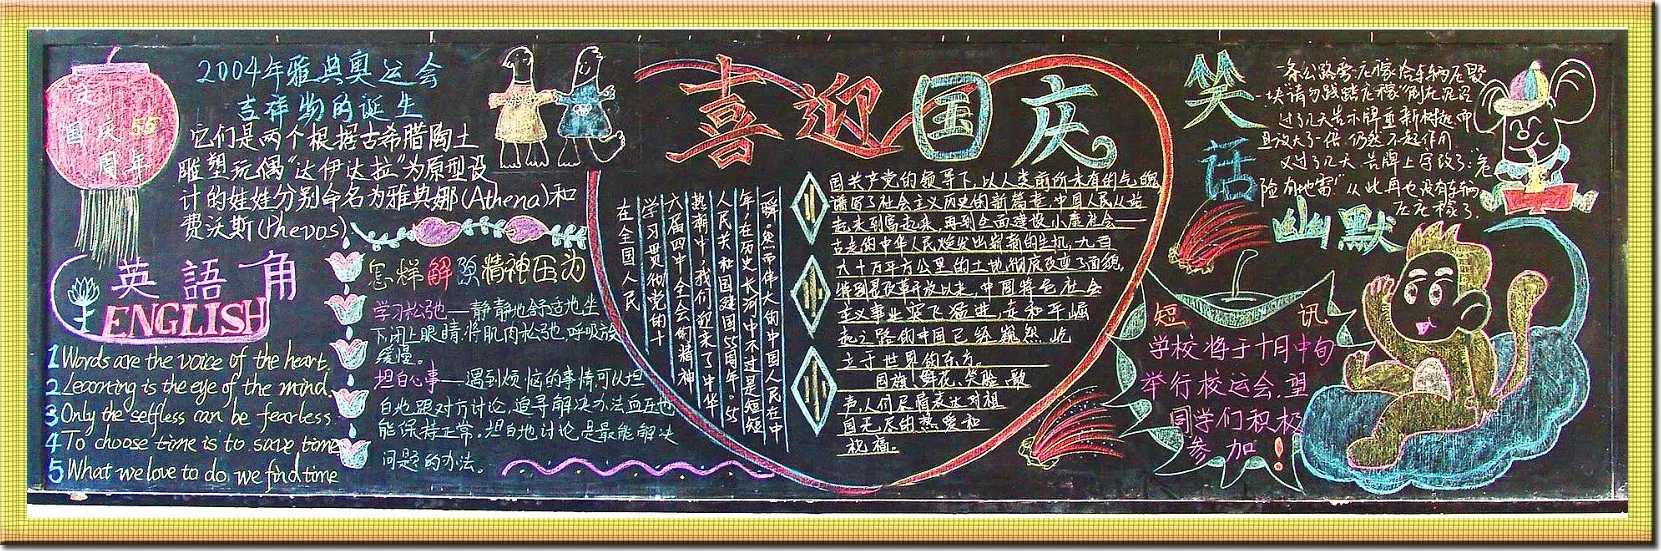 国庆55
周年
2004年雅典奥运会
吉祥物的诞生
它们是两个根据古希腊陶土
雕塑玩偶“达伊达拉”为原型设
计的娃娃分别命名为雅典娜(Athena)和
费沃斯(Phevos)
英語角
ENGLISH
1 Words are the voice of the heart.
2 Learning is the eye of the mind.
3 Only the selfless can be fearless
4 To choose time is to save time
5 What we love to do we find time
怎样解除精神压力
学习松弛——静静地舒适地坐
下闭上眼睛,将肌肉松弛,呼吸放
缓慢。
坦白心事——遇到烦恼的事情可以坦
白地跟对方讨论,追寻解决办法血压也
能保持正常。坦白地讨论是最能解决
问题的办法。
喜迎国庆
瞬,然而伟大的中国人民在中
年,在历史长河中不过是短短
人民共和国建国55周年。55
热潮中,我们迎来了中华
六届四中全会的精神
学习贯彻党的十
在全国人民
国共产党的领导下,以人类前所未有的气魄
谱写了社会主义历史的新篇章,中国人民从站
起来到富起来,再到全面建设小康社会——
古老的中华人民焕发出崭新的生机,九百
六十万平方公里的土地彻底改变了面貌,
特别是改革开放以来,中国特色社会
主义事业突飞猛进,走和平崛
起之路的中国已经巍然屹
立于世界的东方。
国旗、鲜花、笑脸、歌
声,人们尽情表达对祖
国无尽的热爱和
祝福。
笑话
幽默
一条公路旁,庄稼给车辆压毁
一块“请勿践踏庄稼”
过了几天告示牌重新树起,而
且放大了一倍,仍然不起作用
又过了几天,告牌上字改了:“危
险有地雷!”从此再也没有车辆
压庄稼了.
短讯
学校将于十月中旬
举行校运会,望
同学们积极
参加!